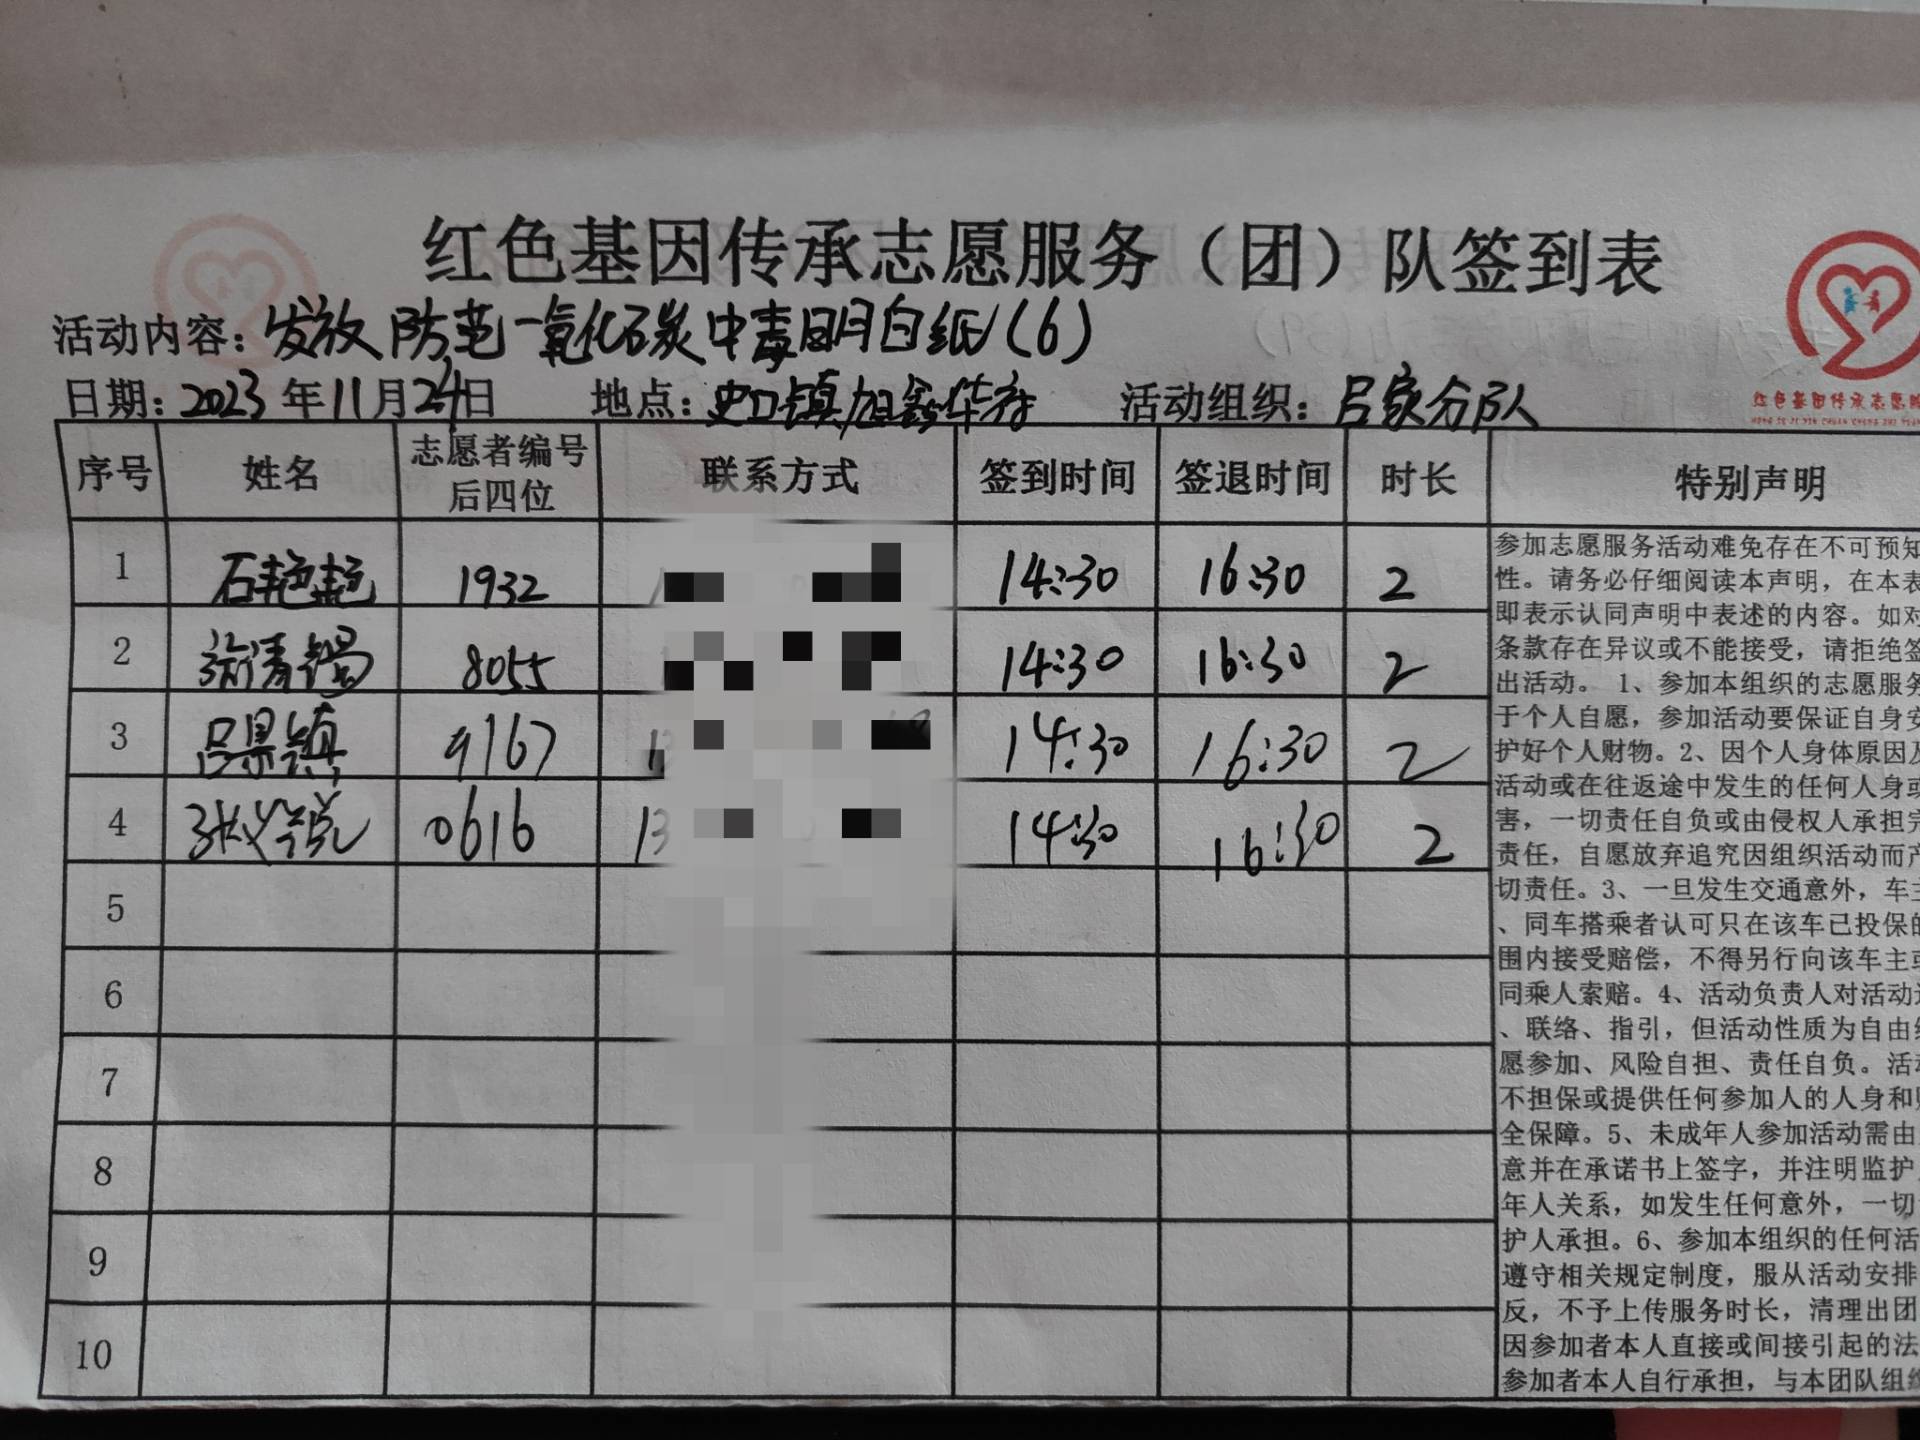 红色基因传承志愿服务（团）队签到表
活动内容：发放防范一氧化碳中毒明白纸（6）
日期：2023年11月24日 地点：史口镇旭鑫华府 活动组织：吕家分队
红色基因传承志愿服
序号 姓名 志愿者编号后四位 联系方式 签到时间 签退时间 时长 特别声明
1 石艳艳 1932 14:30 16:30 2
2 8055 14:30 16:30 2
3 吕景镇 9167 14:30 16:30 2
4 张义锐 0616 13 14:30 16:30 2
5
6
7
8
9
10
参加志愿服务活动难免存在不可预知
性。请务必仔细阅读本声明，在本表
即表示认同声明中表述的内容。如对
条款存在异议或不能接受，请拒绝签
出活动。 1、参加本组织的志愿服务
于个人自愿，参加活动要保证自身安
护好个人财物。2、因个人身体原因及
活动或在往返途中发生的任何人身或
害，一切责任自负或由侵权人承担完
责任，自愿放弃追究因组织活动而产
切责任。3、一旦发生交通意外，车主
、同车搭乘者认可只在该车已投保的
围内接受赔偿，不得另行向该车主或
同乘人索赔。4、活动负责人对活动进
、联络、指引，但活动性质为自由组
愿参加、风险自担、责任自负。活动
不担保或提供任何参加人的人身和财
全保障。5、未成年人参加活动需由
意并在承诺书上签字，并注明监护
年人关系，如发生任何意外，一切
护人承担。6、参加本组织的任何活
遵守相关规定制度，服从活动安排
反，不予上传服务时长，清理出团
因参加者本人直接或间接引起的法
参加者本人自行承担，与本团队组织